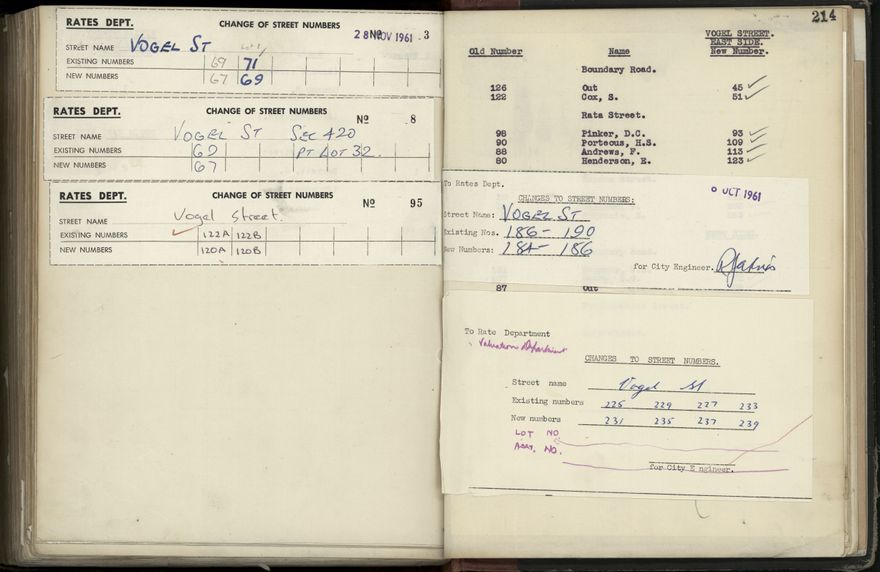 RATES DEPT. CHANGE OF STREET NUMBERS
28 NOV 1961 Nº 3
STREET NAME VOGEL ST Lot 1/
EXISTING NUMBERS 69 71
NEW NUMBERS 67 69
RATES DEPT. CHANGE OF STREET NUMBERS
Nº 8
STREET NAME VOGEL ST SEC 420
EXISTING NUMBERS 69 PT LOT 32.
NEW NUMBERS 67
RATES DEPT. CHANGE OF STREET NUMBERS
Nº 95
STREET NAME Vogel Street.
EXISTING NUMBERS 122A 122B
NEW NUMBERS 120A 120B
214
VOGEL STREET.
EAST SIDE.
Old Number Name New Number.
Boundary Road.
126 Out 45
122 Cox, S. 51
Rata Street.
98 Pinker, D.C. 93
90 Porteous, H.S. 109
88 Andrews, F. 113
80 Henderson, E. 123
To Rates Dept.
OCT 1961
CHANGES TO STREET NUMBERS:
Street Name: VOGEL ST
Existing Nos. 186 - 190
New Numbers: 184 - 186
for City Engineer.
87 Out
To Rate Department
Valuation Department
CHANGES TO STREET NUMBERS.
Street name Vogel St
Existing numbers 225 229 227 233
New numbers 231 235 237 239
LOT NO
ASST. NO.
for City Engineer.